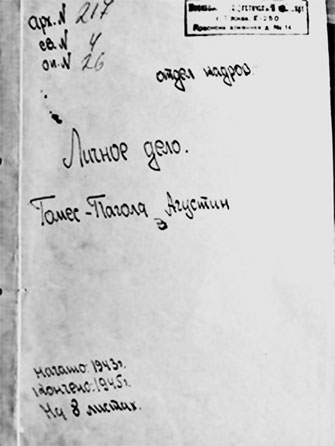 арх. N 217
св. N 4
оп. N 26
г. Москва, Е-250
отдел кадров.
Личное дело.
Гомес-Пагола Агустин
Э
начато: 1943 г.
окончено: 1945 г.
На 8 листах.